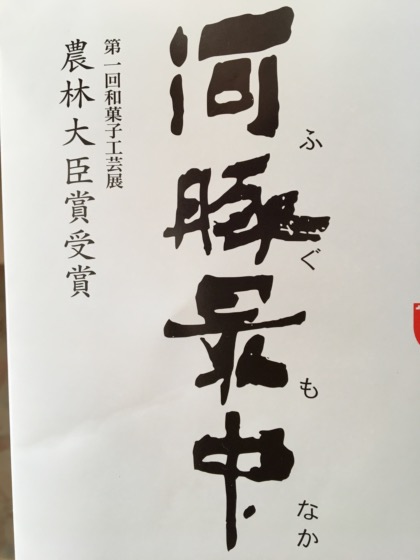 河豚最中
ふぐもなか
第一回和菓子工芸展
農林大臣賞受賞